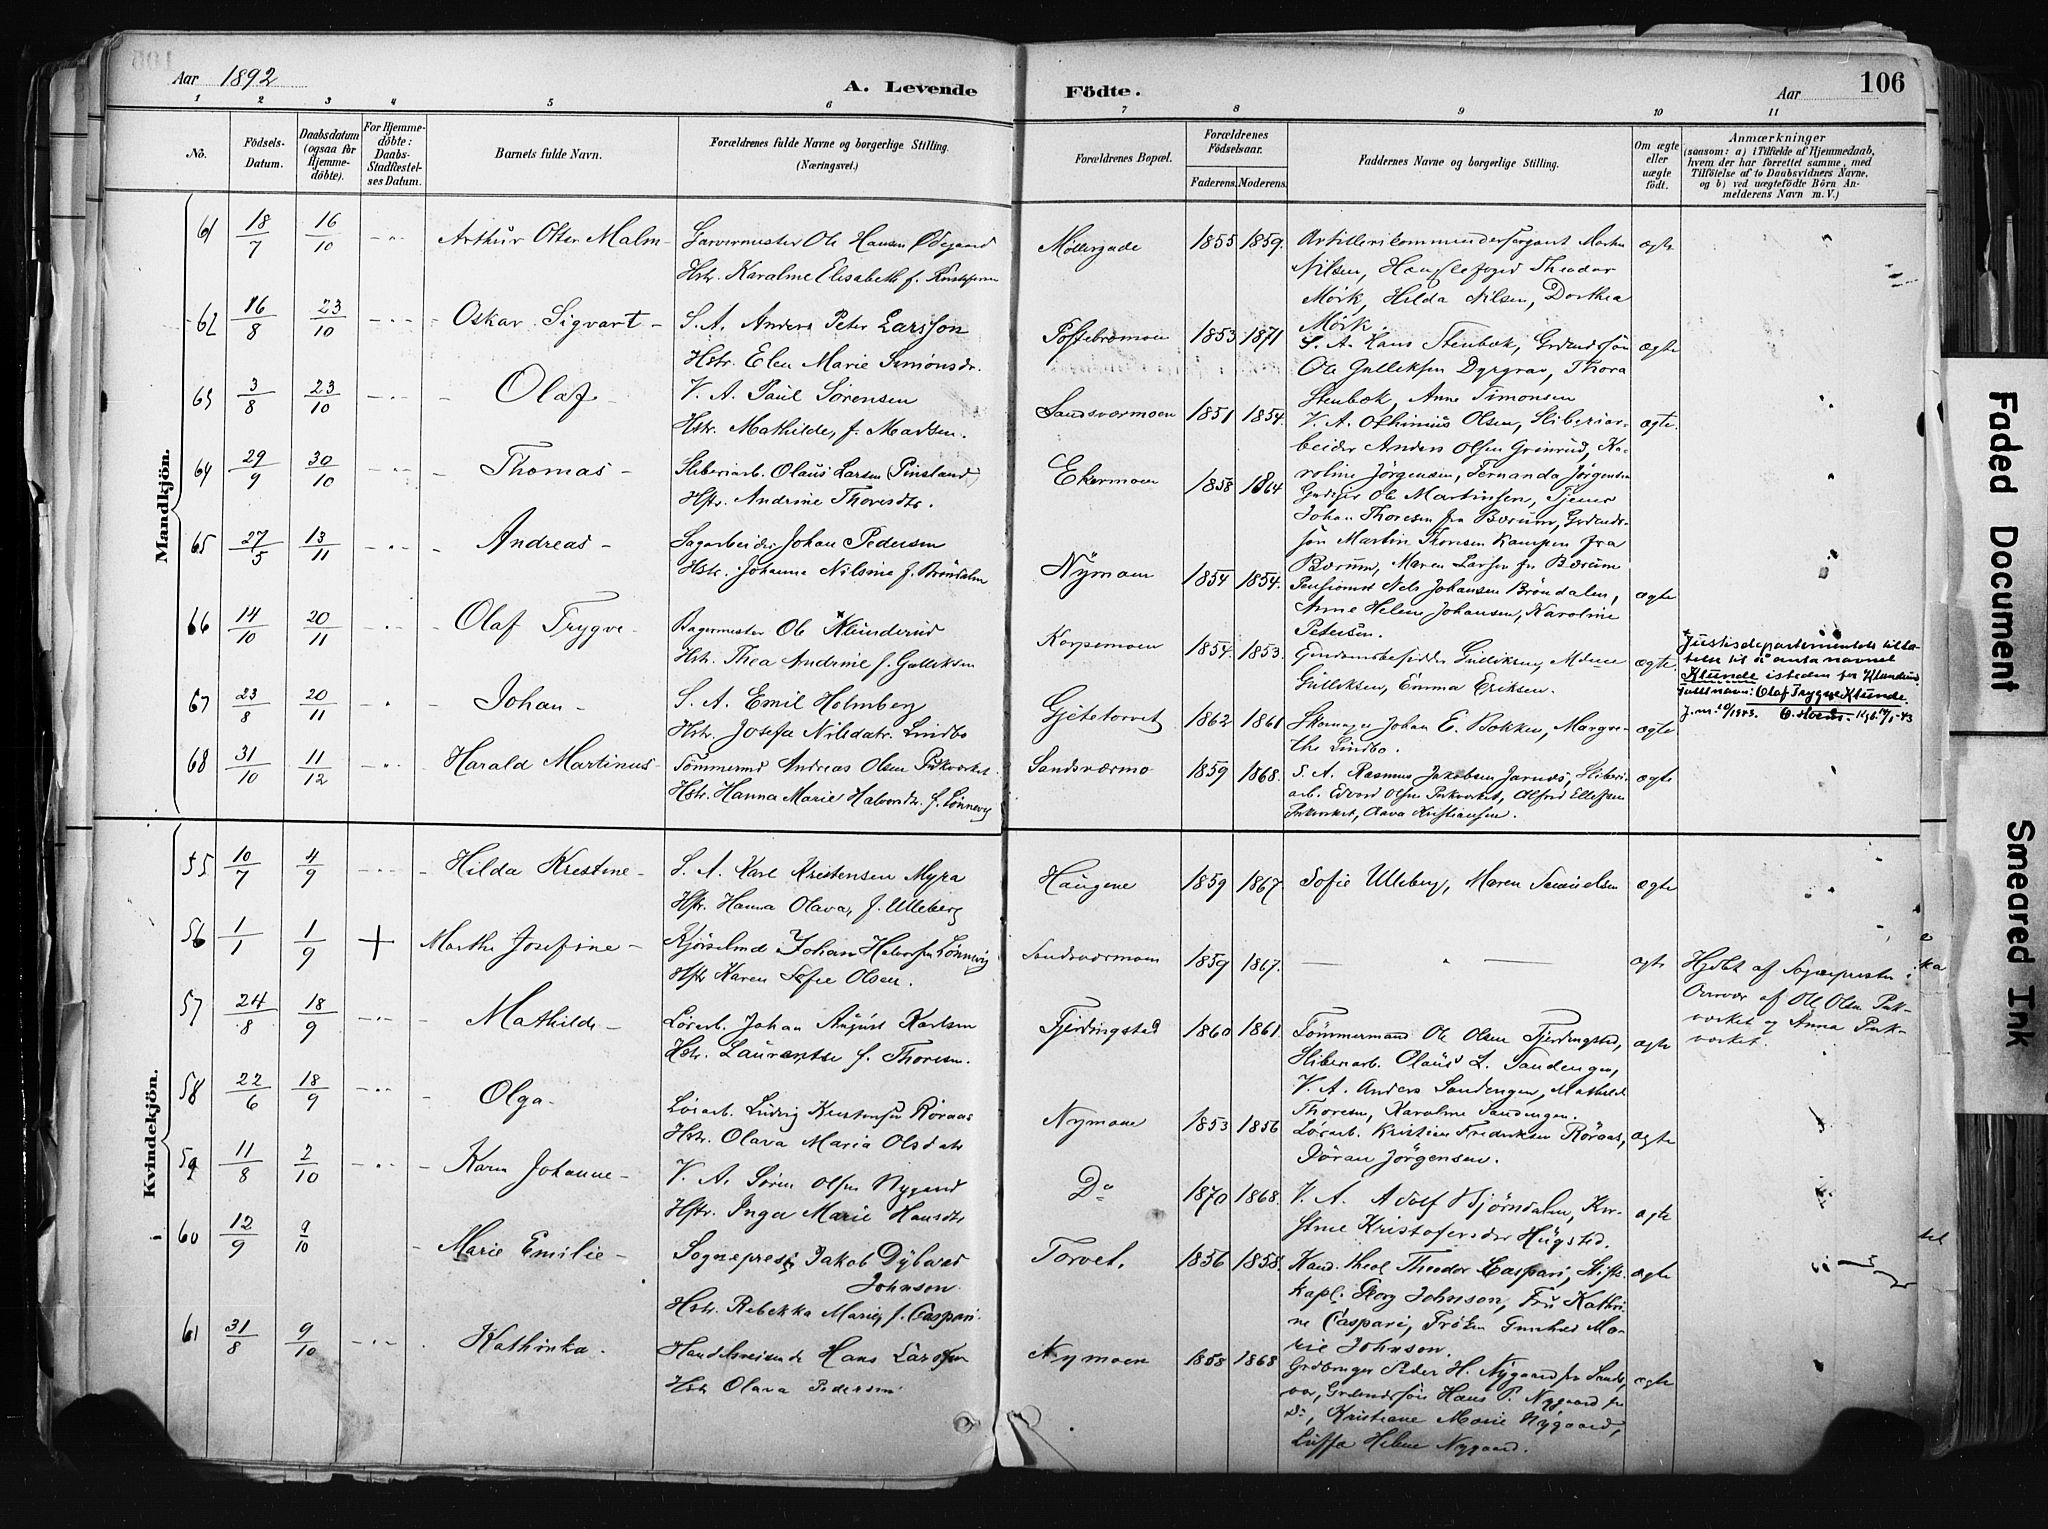 Aar 1892
A. Levende
Födte.
Aar
106
1 2 3 4 5 6 7 8 9 10 11
No.
Födsels-
Datum.
Daabsdatum
(ogsaa för
Hjemme-
döbte).
For Hjemme-
döbte:
Daabs-
Stadfæstel-
ses Datum.
Barnets fulde Navn.
Forældrenes fulde Navne og borgerlige Stilling.
(Næringsvei.)
Forældrenes Bopæl.
Forældrenes
Födselsaar.
Faderens. Moderens.
Faddernes Navne og borgerlige Stilling.
Om ægte
eller
uægte
födt.
Anmærkninger
(saasom: a) i Tilfælde af Hjemmedaab,
hvem der har forrettet samme, med
Tilföielse af to Daabsvidners Navne,
og b) ved uægtefödte Börn An-
melderens Navn m. V.)
Mandkjön.
61 18/7 16/10 Arthur Otter Malm Garvermester Ole Hansen Ødegaard
Hstr. Karoline Elisabeth f.
Møllergade 1855 1859. Artillerikommandersergant Martin ægte
Nilsen, Theodor
Mörk, Hilda Nilsen, Dorthea
Mörk.
62 16/8 23/10 Oskar Sigvart S. A. Anders Peter Larsson
Hstr. Elen Marie Simonsdr.
1853 1871 S. A. Hans Stenbæk, Grdmdssön ægte
Ole Gulliksen Dyrgrav, Thora
Stenbæk, Anne Timonsen
63 3/8 23/10 Olaf V. A. Paul Sörensen
Hstr. Mathilde, f. Madsen.
Sandsværmoen 1851 1854. V. A. Olsen, Sliberiar- ægte.
beider Anders Olsen Grönrud, Ka-
roline Jörgensen, Fernanda Jörgensen
64 29/9 30/10 Thomas Sliberiarb. Olaus Larsen
Hstr. Andrine Thoresdtr.
Ekermoen 1858 1864 Ole Martinsen, Tjener
Johan Thoresen fra Bærum,
Martin Thoresen Kampen fra
Bærum, Maren Larsen fra Bærum
65 27/5 13/11 Andreas Sagarbeider Johan Pedersen
Hstr. Johanne Nilsine f. Bröndalen
Nÿmoen 1854 1854. Pensionist Nels Johansen Bröndalen, ægte
Anne Helene Johansen, Karoline
Petersen.
66 14/10 20/11 Olaf Trygve Bagermester Ole Klunderud
Hstr. Thea Andrine f. Gulliksen
Korpemoen 1854. 1853. Eiendomsbesidder Gulliksen, ægte.
Gulliksen, Emma Eriksen.
Justisdepartementets tilla-
telse til å anta navnet
Klunde isteden for Klunderud
Fullt navn: Olaf Trygve Klunde
67 23/8 20/11 Johan S. A. Emil Holmberg
Hstr. Josefa Nilsdatr. Lindbo
Gjetetorvet 1862 1861 Skomager Johan E. Bakken, Margre- ægte
the Lindbo.
68 31/10 11/12 Harald Martinus Tömmermd Andreas Olsen Pukverket.
Hstr. Hanna Marie Halvorsdtr. f. Lønnevig
Sandsværmo 1859 1868. S. A. Rasmus Jakobsen Jarnæs, Sliberi- ægte
arb. Edvard Olsen Pukverket, Alfred Ellefsen
Pukverket, Olava Kristiansen.
Kvindekjön.
55 10/7 4/9 Hilda Kristine S. A. Karl Kristensen Myra
Hstr. Hanna Olava, f. Ulleberg
Haugene 1859 1867. Sofie Ulleberg, Maren Samuelsen ægte
56 1/1 1/9 + Marthe Josefine Kjörselmd Johan Halvorsen Lönnevig
Hstr Karen Sofie Olsen.
Sandsværmoen 1859 1867. ægte Hjdbt af Sogneprest
af Ole Olsen Puk-
verket og Anna Puk-
verket.
57 24/8 18/9 Mathilde Lösarb. Johan August Karlsen
Hstr. Laurentse f. Thoresen.
Fjerdingstad 1860 1861. Tömmermand Ole Olsen Fjerdingstad, ægte
Sliberiarb. Olaus L. Sandengen,
V. A. Anders Sandengen, Mathilde
Thoresen, Karoline Sandengen.
58 22/6 18/9 Olga Lösarb. Ludvig Kristensen Röraas
Hstr. Olava Maria Olsdatr
Nymoen 1853 1856 Lösarb. Kristian Frederiksen Röraas, ægte
Göran Jörgensen.
59 11/8 2/10 Karen Johanne V. A. Sören Olsen Nygaard
Hstr. Inga Marie Hansdtr
Do 1870 1868. V. A. Adolf Bjørndalen, Kir-
stine Kristofersdtr Hügsted. ægte
60 12/9 9/10 Marie Emilie Sogneprest Jakob Dybwad
Johnson.
Hstr. Rebekka Marie, f. Caspari.
Torvet. 1856 1858. Kand. theol Theodor Caspari, Stifts- ægte
kapl. Georg Johnson, Fru Kathri-
ne Caspari, Frøken Gunhild Ma-
rie Johnson.
61 31/8 9/10 Kathinka. Handelsreisende Hans Larsen
Hstr Olava Pedersen
Nymoen 1858 1868 Grdbruger Peder H. Nygaard fra Sands- ægte
vær, Grdmdssön Hans P. Nygaard fra
Do, Kristiane Marie Nÿgaard,
Helene Nygaard.
Faded Document
Smeared Ink